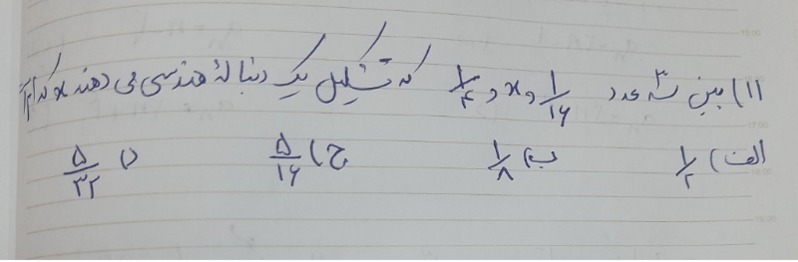 ۱۱) بین سه عدد ۱/۱۶ و x و ۱/۴ که تشکیل یک دنبالهٔ هندسی می دهند x کدام
الف) ۱/۲ ب) ۱/۸ ج) ۵/۱۶ د) ۵/۳۲